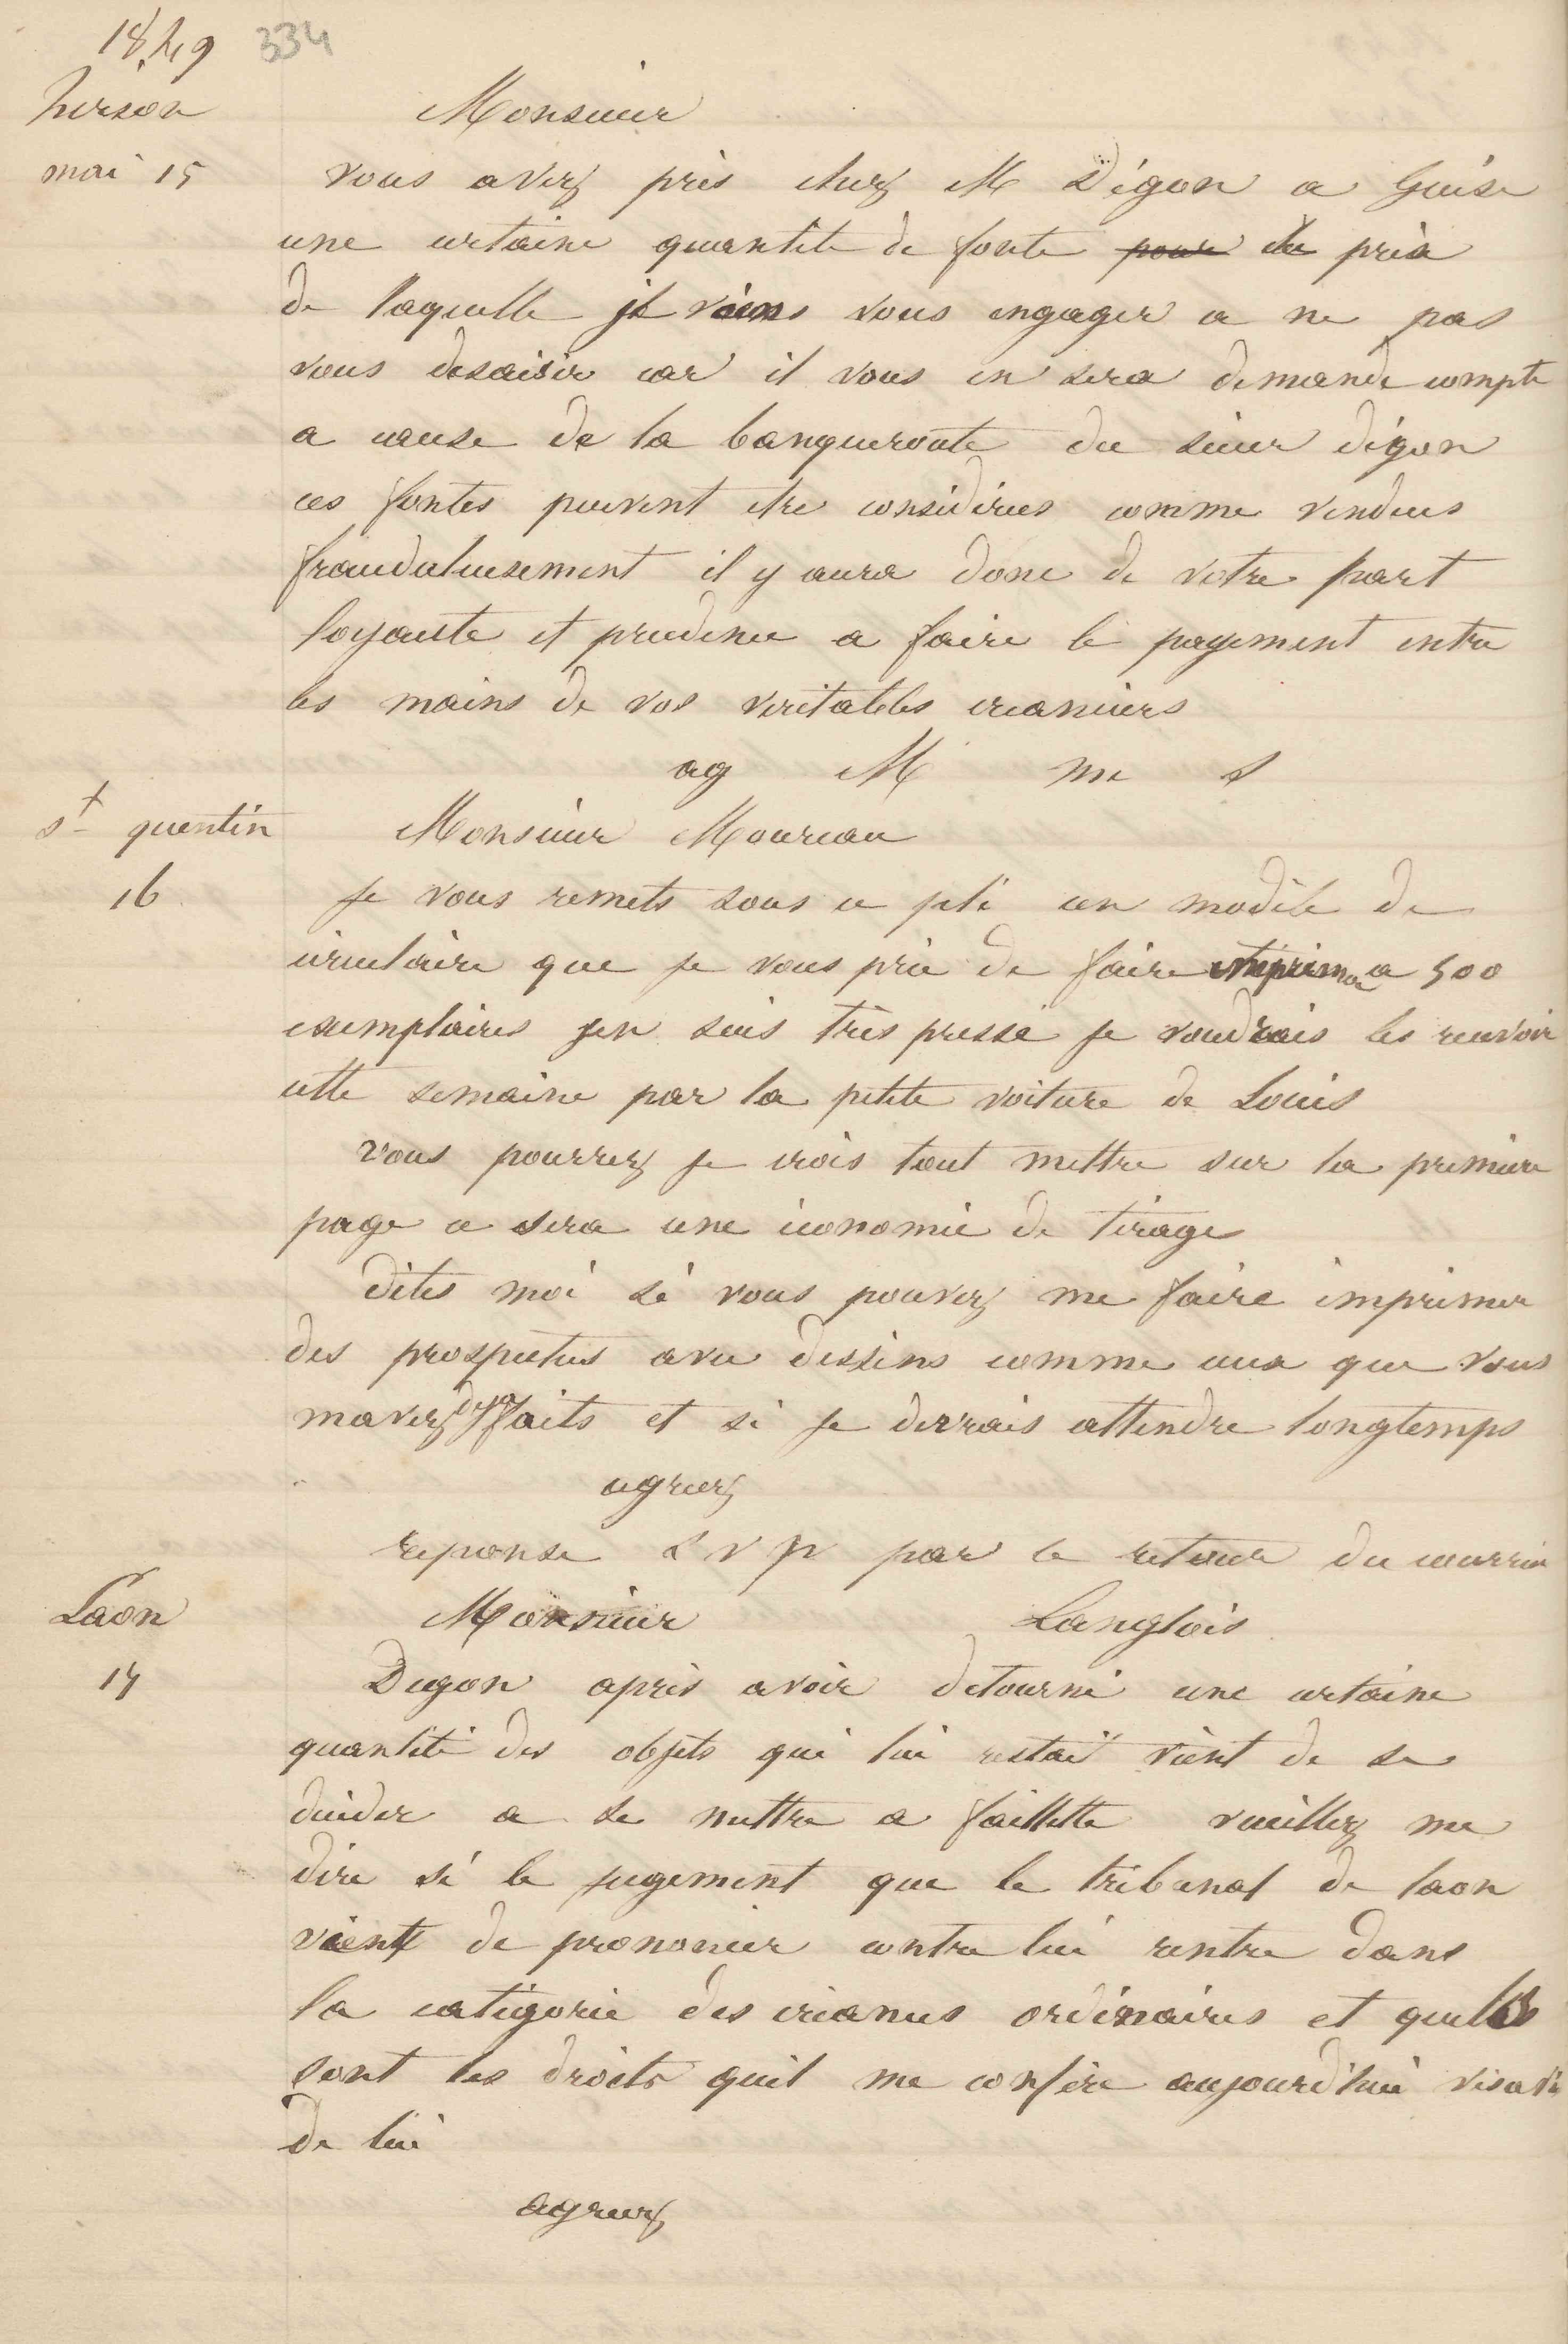 1849 334
hirson
mai 15
Monsieur
vous avez pris chez M Dégon a Guise
une certaine quantite de fonte pour du prix
de laquelle je viens vous engager a ne pas
vous desaisir car il vous en sera demande compte
a cause de la banqueroute du sieur dégon
ces fontes peuvent etre considérées comme vendues
frauduleusement il y aura donc de votre part
loyauté et prudence a faire le payement entre
les mains de vos veritables creanciers
ag M me s
st quentin
16
Monsieur Moureau
Je vous remets sous ce pli un modèle de
circulaire que je vous prie de faire imprimer a 500
exemplaires jen suis très pressé je voudrais les recevoir
cette semaine par la petite voiture de Louis
vous pourrez je crois tout mettre sur la premiere
page ce sera une économie de tirage
dites moi si vous pouvez me faire imprimer
des prospectus avec dessins comme ceux que vous
mavez deja faits et si je devrais attendre longtemps
agreez
reponse s v p par le retour du courrier
Laon
17
Monsieur Langlois
Degon après avoir détourné une certaine
quantité des objets qui lui restait vient de se
decider a se mettre a faillette veuillez me
dire si le jugement que le tribunal de laon
vient de prononcer contre lui rentre dans
la catégorie des créances ordinaires et quels
sont les droits quil me confère aujourd'hui visavis
de lui
agreez